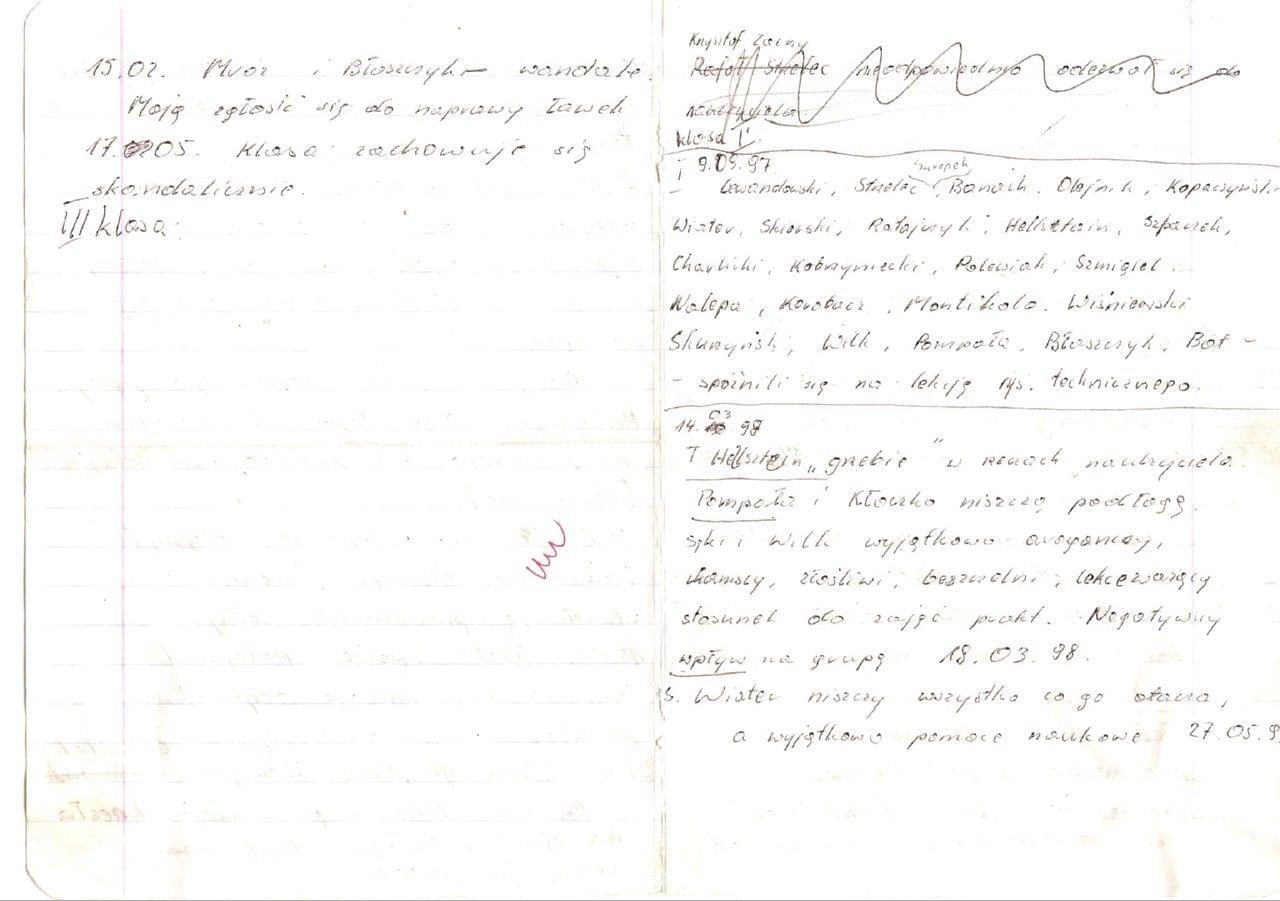 15.02. Mróz i Błaszczyk – wandale.
Mają zgłosić się do naprawy ławek
17.05. Klasa zachowuje się
skandalicznie.
III klasa.
Krzysztof Zacny
Rafał Strzelec nieodpowiednio odezwał się do
nauczyciela.
klasa I
I 9.09.97
Lewandowski, Strzelec, Banaik. Olejnik, Kopaczyński
Wiater, Skierski, Ratajczyk, Hellsztain, Szpaczek,
Charlicki, Kobrzyniecki, Polewiak, Szmigiel.
Nalepa, Karabacz, Montikolo. Wiśniewski
Skurzyński, Wilk, Pompała, Błaszczyk, Bat –
– spóźnili się na lekcję rys. technicznego.
14.03 98
I Hellsztein „grzebie" w rzeczach nauczyciela.
Pompała i Kłaczko niszczą podłogę.
i Wilk wyjątkowo aroganccy,
chamscy, złośliwi, bezczelni, lekceważący
stosunek do zajęć prakt. Negatywny
wpływ na grupę 18.03.98.
S. Wiater niszczy wszystko co go otacza,
a wyjątkowo pomoce naukowe 27.05.9